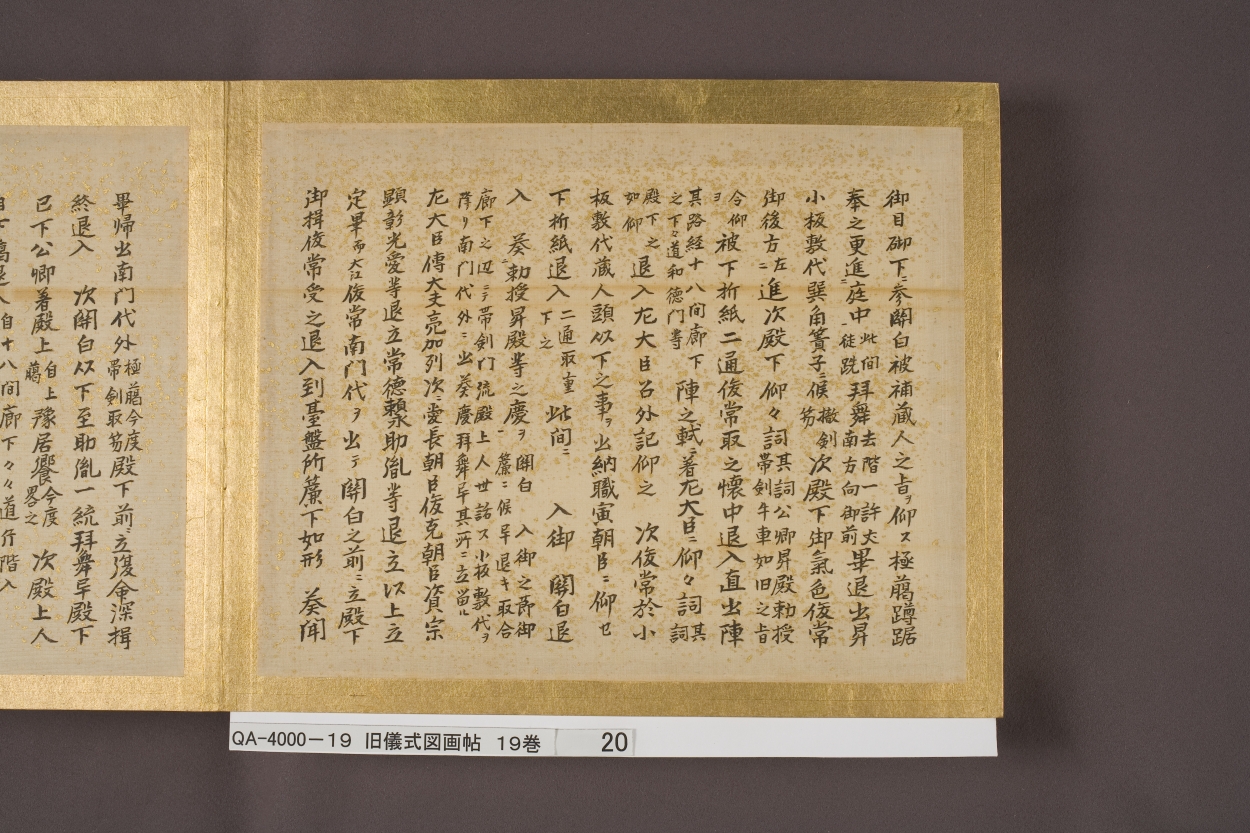 御目御下ニ参關白被補蔵人之旨ヲ仰ス極﨟蹲踞
奉之更進庭中此間徒跣拜舞去階一許丈南方向御前畢退出昇
小板敷代巽角簀子ニ候撤劍笏次殿下御氣色俊常
御後方左ニ進次殿下仰々詞其詞公卿昇殿勅授帯劍牛車如旧之旨
今仰ヲ被下折紙二通俊常取之懐中退入直出陣
其路経十八間廊下之下々道和德門等陣之軾ニ着左大臣ニ仰々詞其詞
殿下之如仰退入左大臣召外記仰之 次俊常於小
板敷代蔵人頭以下之事ヲ出納職寅朝臣ニ仰セ
下折紙退入二通取重下之此間ニ 入御 關白退
入 葵勅授昇殿等之慶ヲ關白簾ニ候 入御之節御早退キ取合
廊下之辺ニテ帯劍門流殿上人世話ス小板敷代ヲ
降リ南門代外ニ出葵慶拜舞早其所ニ立留ル
左大臣傳大夫亮加列次ニ愛長朝臣俊克朝臣資宗
顕彰光愛等退立常德頼助胤等退立以上立
定畢而大江俊常南門代ヲ出テ關白之前ニ立殿下
御揖俊常受之退入到臺盤所簾下如形 葵聞
畢帰出南門代外極﨟今度帯劍取笏殿下前ニ立復命深揖
終退入 次關白以下至助胤一統拜舞早殿下
已下公卿著殿上自上﨟豫居饗今度畧之 次殿上人
自下﨟退入自十八間廊下々々道行階入
QA-4000-19 旧儀式図画帖 19巻 20